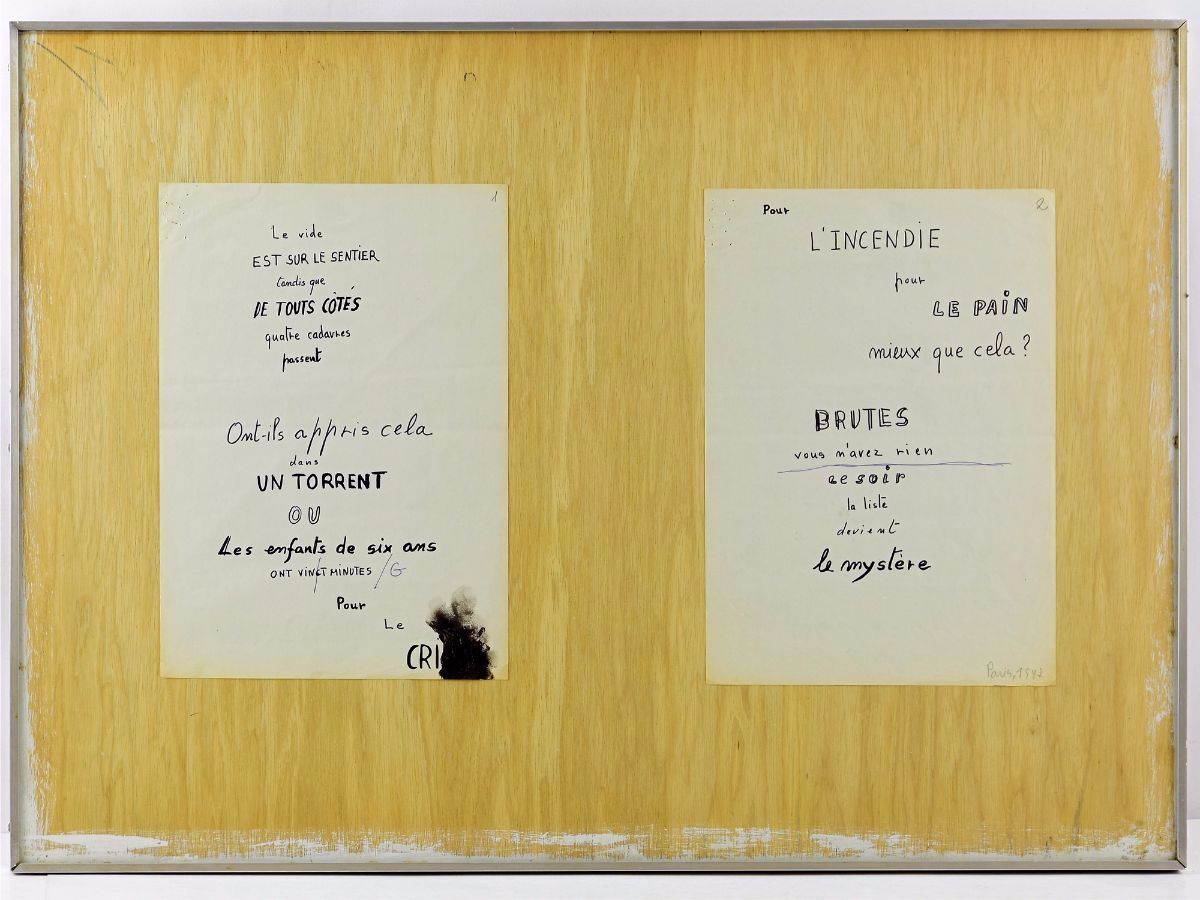 1
Le vide
EST SUR LE SENTIER
tandis que
DE TOUTS CÔTÉS
quatre cadavres
passent
Ont-ils appris cela
dans
UN TORRENT
OU
Les enfants de six ans
ONT VINGT MINUTES /G
Pour
Le
CRI
2
Pour
L'INCENDIE
pour
LE PAIN
mieux que cela ?
BRUTES
vous n'avez rien
ce soir
la liste
devient
le mystère
Paris,